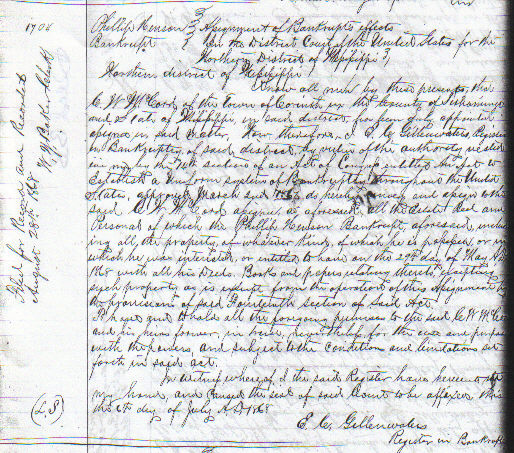 1704
Phillip Henson } Assignment of Bankrupts effects
Bankrupt } In the District Court of the United States for the
Northern District of Mississippi
Northern district of Mississippi
Know all men by these presents, that
C. W. McCord of the Town of Corinth in the County of Tishomingo
and State of Mississippi, in said district, has been duly appointed
assignee in said matter, Now therefore, I E. C. Gillenwaters, Register
in Bankruptcy of said district, by virtue of the authority vested
in me by the 14th section of an Act of Congress entitled An Act to
Establish a Uniform system of Bankruptcy throughout the United
States, approved March 2nd 1867 do hereby convey and assign to the
said C. W. McCord assignee as aforesaid, all the Estate real and
Personal of which the Phillip Henson Bankrupt aforesaid, includ
ing all the property, of whatever kind, of which he is possessed, or in
which he was interested or entitled to have on the 29th day of May AD
1868 with all his Deeds, Books and papers relating thereto, excepting
such property as is exempt from the operation of this Assignment by
the provisions of said Fourteenth section of said Act.
To have and to hold all the foregoing premises to the said C. W. McCord
and his heirs forever, in trust nevertheless for the use and purposes
with the powers, and subject to the condition and limitations set
forth in said act.
In witness whereof, I the said Register have hereunto set
my hand, and caused the seal of said Court to be affixed, this
the day of July A.D. 1868
E. C. Gillenwaters
Register in Bankruptcy
(LS)
Filed for Record and Recorded
August 28th 1868 Clerk